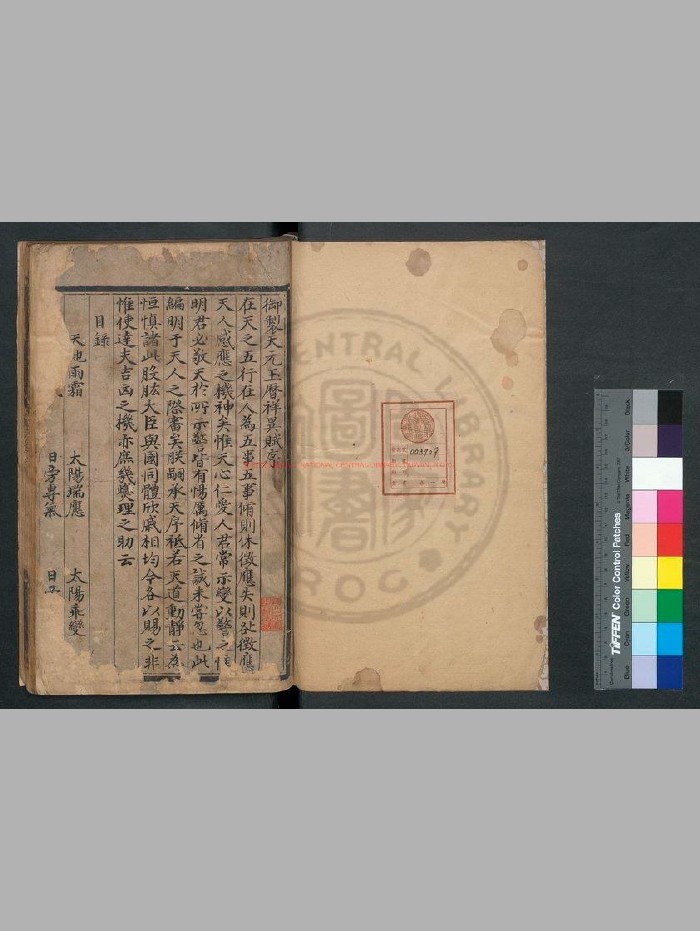 御製天元玉曆祥異賦序
在天之五行在人為五事五事脩則休徵應失則咎徵應
天人感應之機神矣惟天心仁愛人君常示變以警之惟
明君必敬天於所示警皆有惕厲脩省之誠未嘗忽也此
編明于天人之際審矣朕嗣承天序祗若天道動靜云為
恒慎諸此股肱大臣與國同體欣戚相均今各以賜之非
惟使達夫吉凶之機亦庶幾爕理之助云
目錄
天 雨霜 太陽瑞應 太陽乘變
日旁專氣 日
003909
CENTRAL LIBRARY
ROC
圖
TIFFEN Color Control Patches
Blue Cyan Green Yellow Red Magenta White 3/Color Black